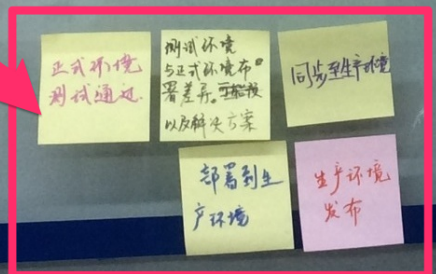 正式环境
测试通过.
测试环境
与正式环境布
署差异。
以及解决方案
同步至生产环境
部署到生
产环境
生产环境
发布